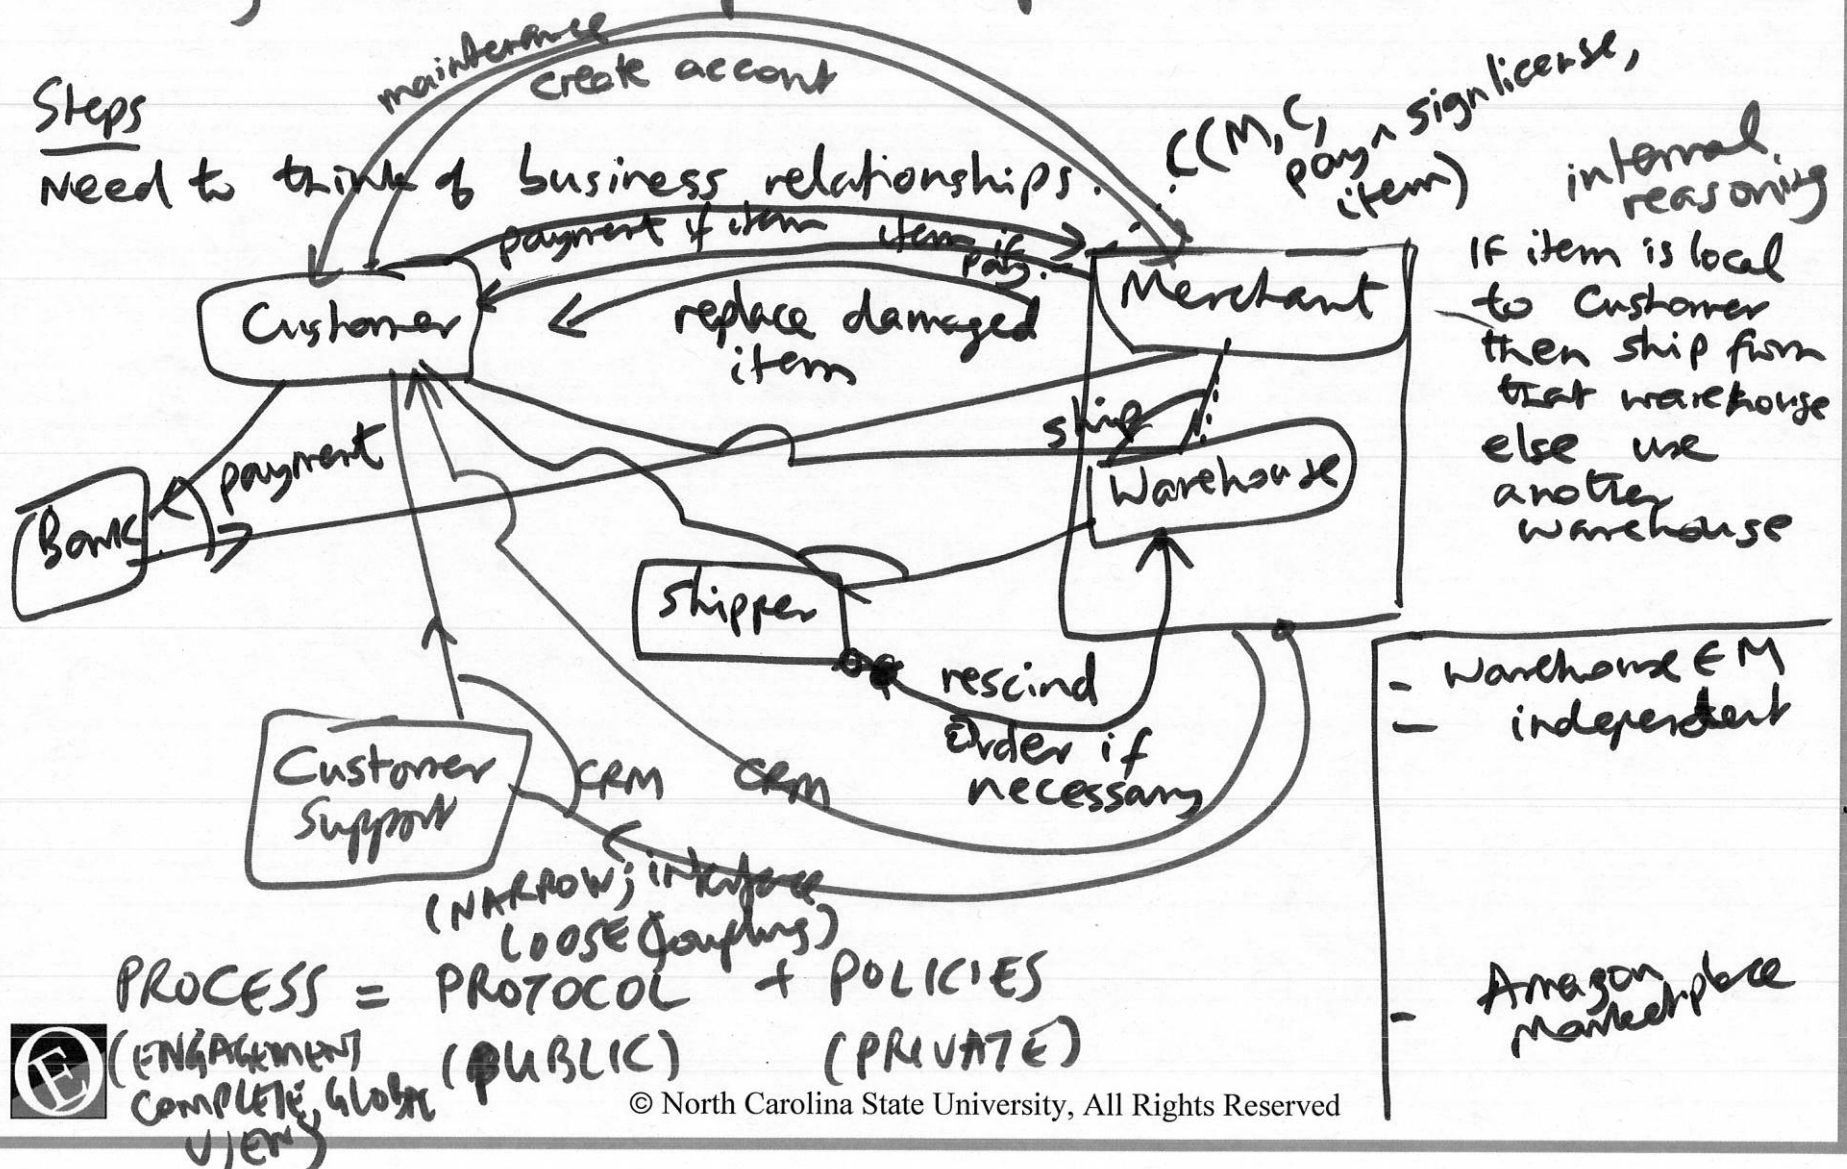 maintenance
create account
Steps
Need to think of business relationships.
C(M, C,
pay ^ sign license,
item)
internal
reasoning
payment if item
item if
pay.
Customer
Merchant
replace damaged
item
IF item is local
to customer
then ship from
that warehouse
else use
another
warehouse
ship
Warehouse
payment
Bank
Shipper
rescind
order if
necessary
- Warehouse ∈ M
- independent
Customer
Support
CRM
CRM
(NARROW; interface
LOOSE couplings)
PROCESS = PROTOCOL + POLICIES
(ENGAGEMENT (PUBLIC) (PRIVATE)
COMPLETE, GLOBAL
VIEW)
- Amazon
Marketplace
E
© North Carolina State University, All Rights Reserved